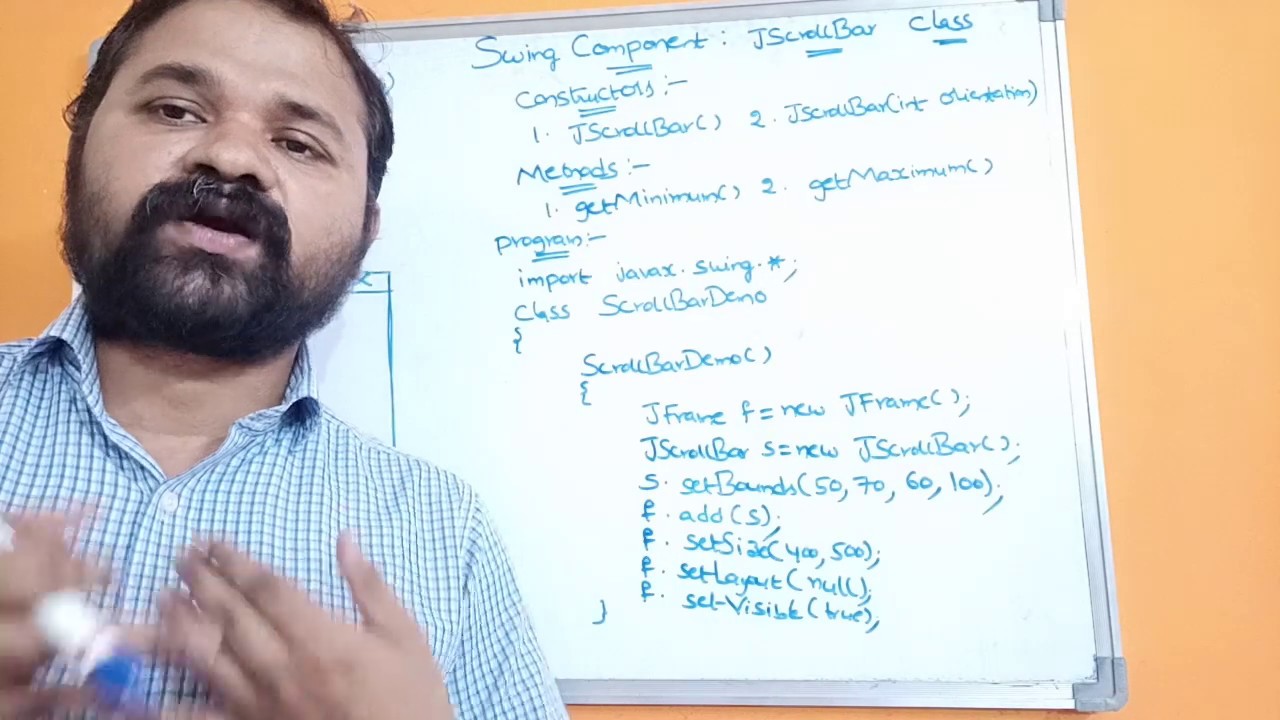 Swing Component: JScrollBar Class
Constructors:-
1. JScrollBar() 2. JScrollBar(int orientation)
Methods:-
1. getMinimum() 2. getMaximum()
program:-
import javax.swing.*;
class ScrollBarDemo
{
ScrollBarDemo()
{
JFrame f=new JFrame();
JScrollBar s=new JScrollBar();
s.setBounds(50,70,60,100);
f.add(s);
f.setSize(400,500);
f.setLayout(null);
f.setVisible(true);
}